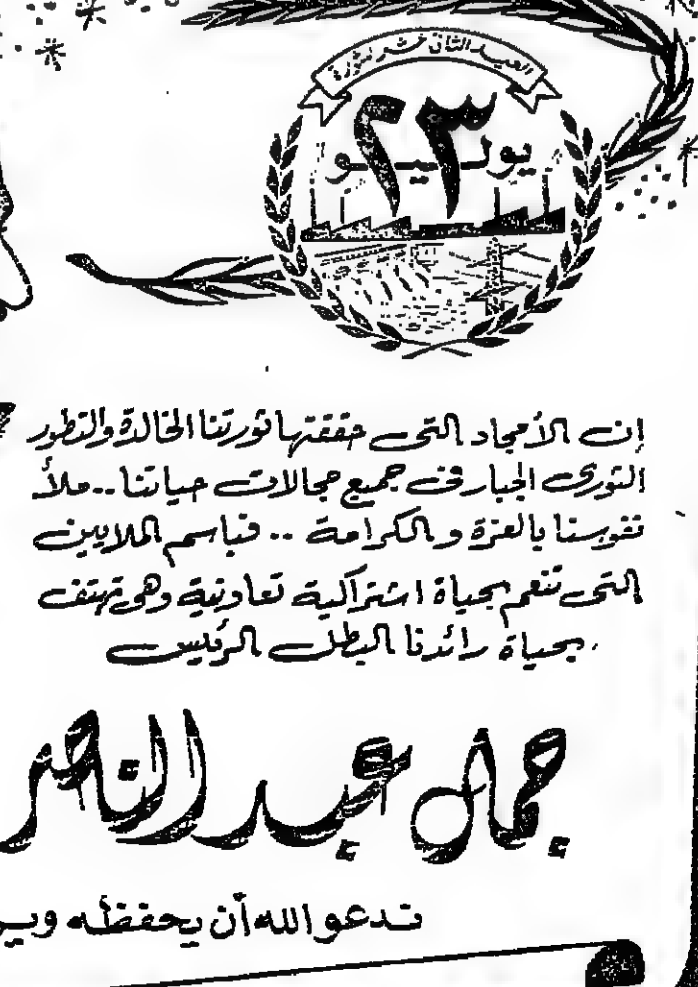 العيد الثانى عشر لثورة
٢٣
يوليو
إن الأمجاد التى حققتها ثورتنا الخالدة والتطور
الثورى الجبار فى جميع مجالات حياتنا .. ملأ
نفوسنا بالعزة والكرامة .. فباسم الملايين
التى تنعم بحياة اشتراكية تعاونية وهى تهتف
بحياة رائدنا البطل الرئيس
جمال عبد الناصر
ندعو الله أن يحفظه